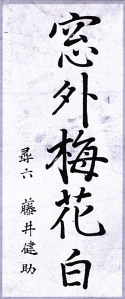 窓外梅花白
尋六 藤井健助